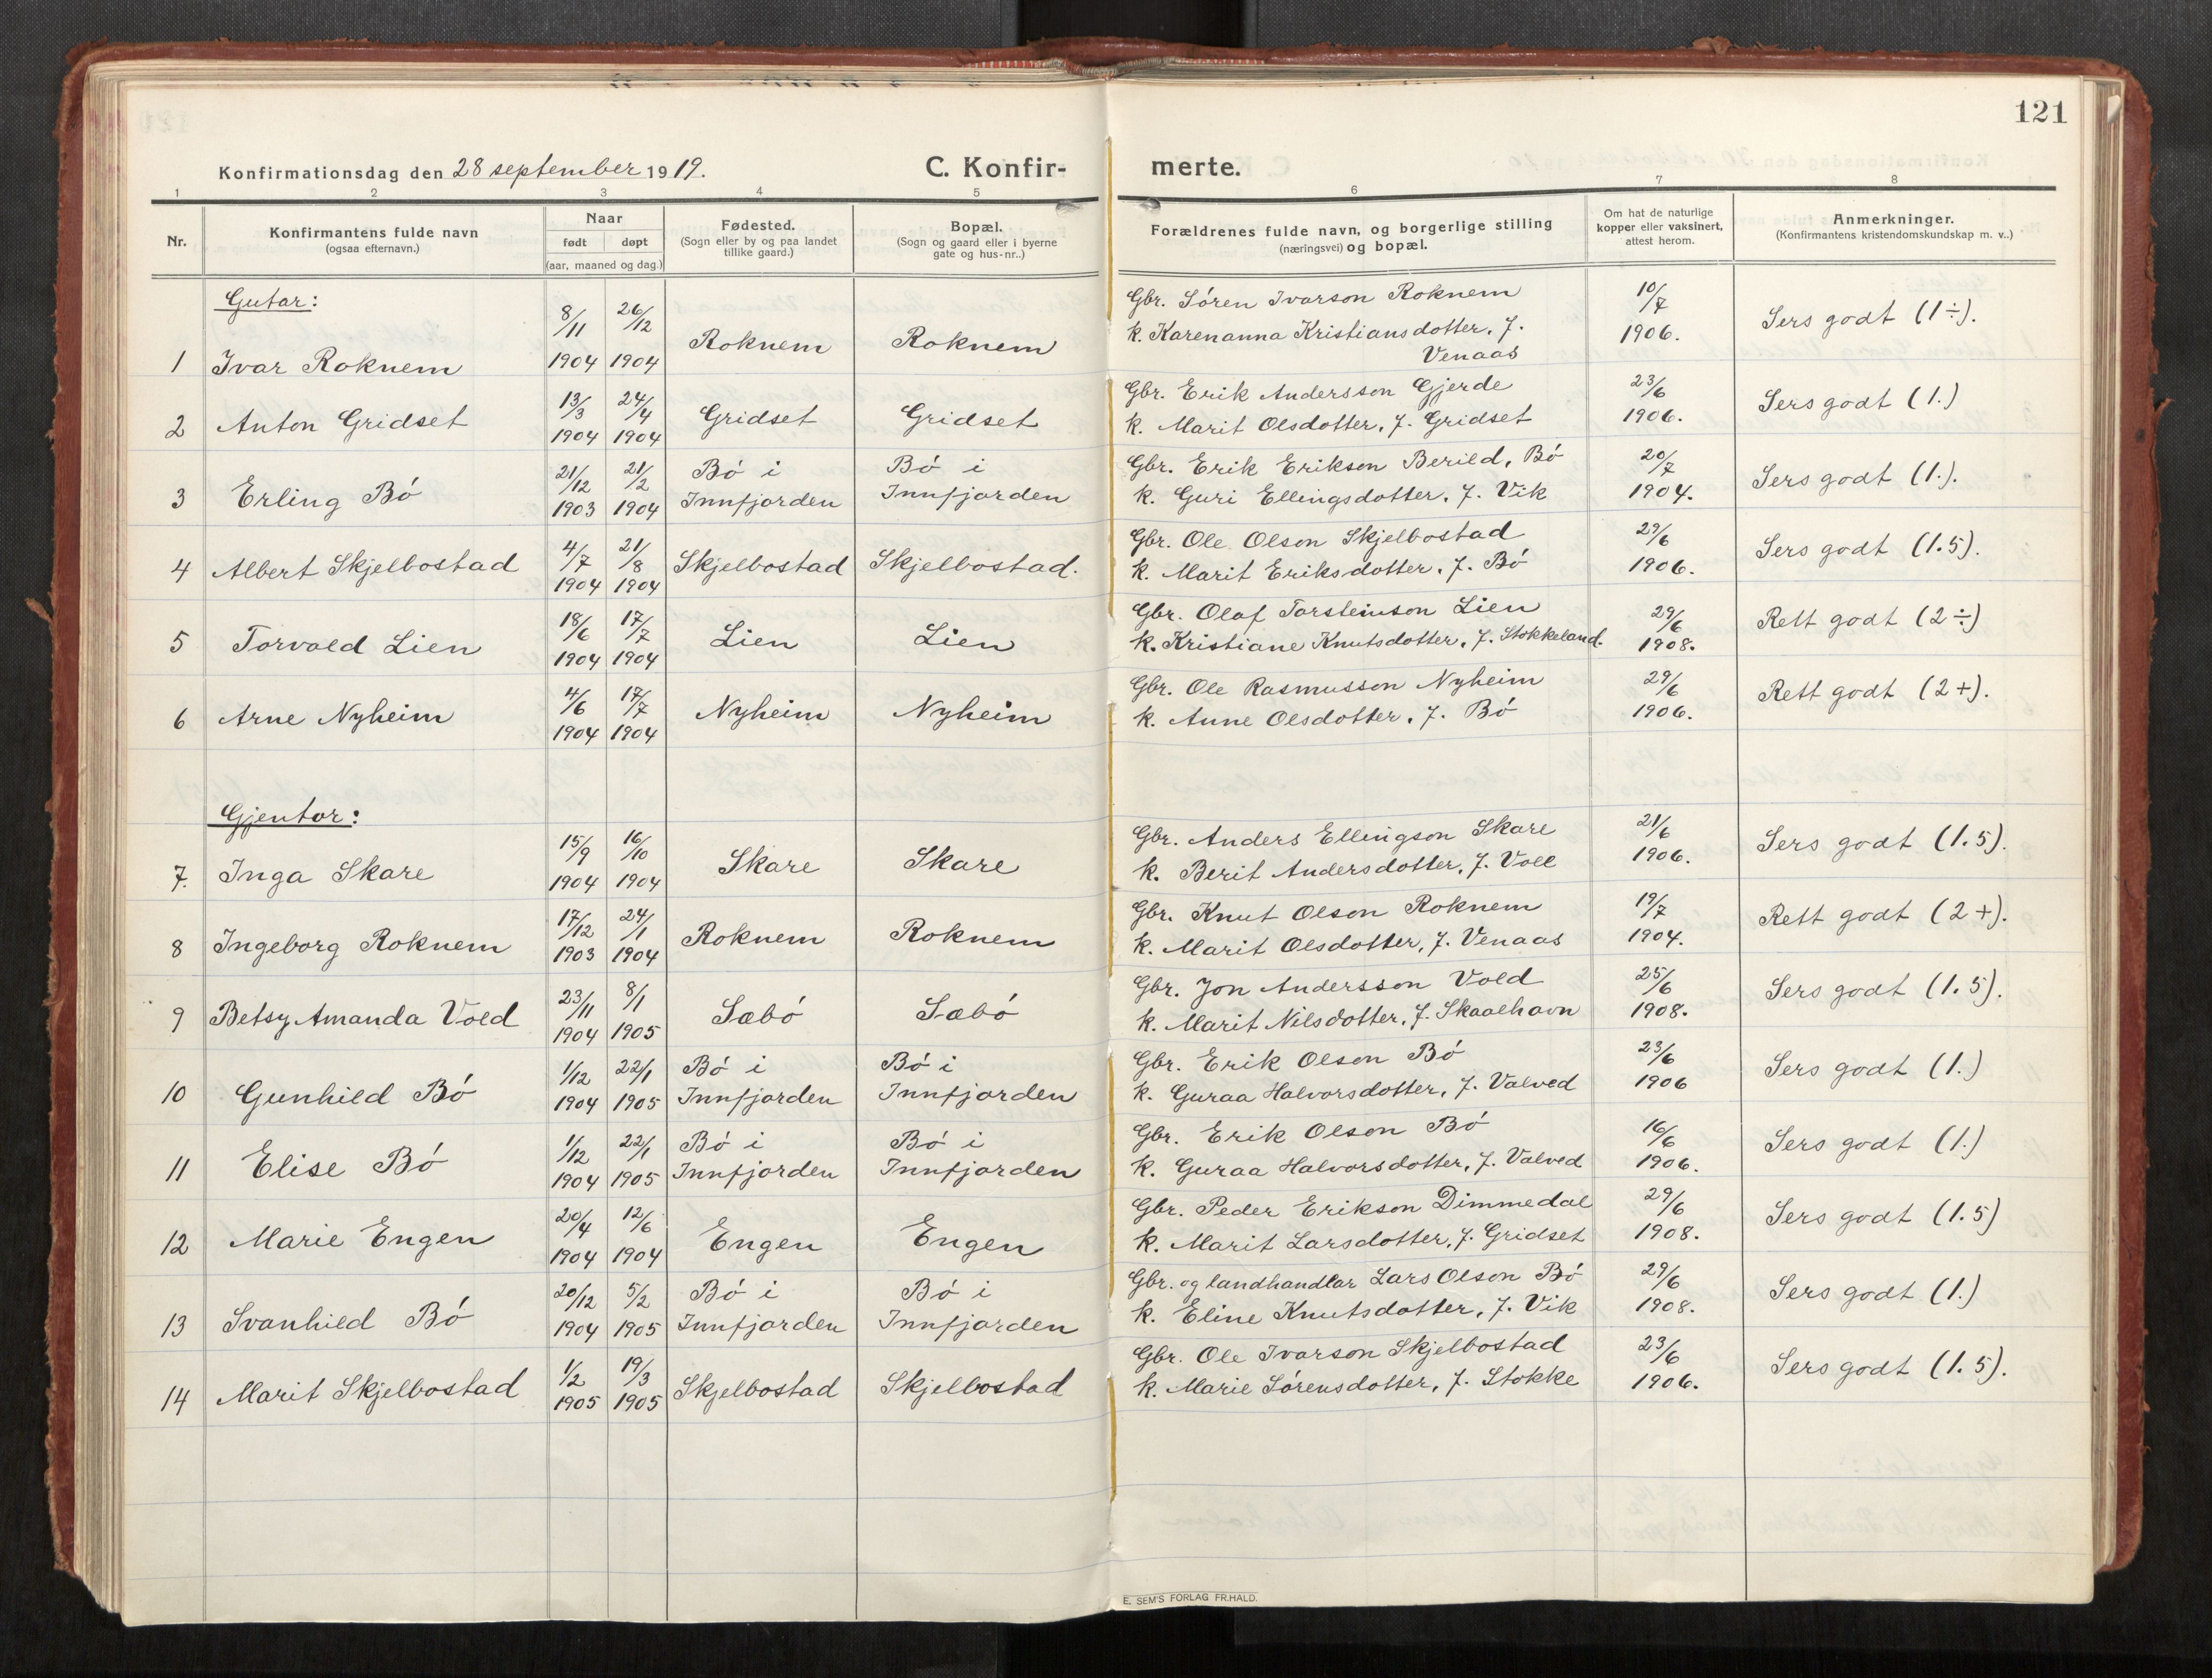 121
Konfirmationsdag den 28 september 1919. C. Konfir- merte.
1 2 3 4 5 6 7 8
Nr. Konfirmantens fulde navn (ogsaa efternavn.) Naar født døpt (aar, maaned og dag.) Fødested. (Sogn eller by og paa landet tillike gaard.) Bopæl. (Sogn og gaard eller i byerne gate og hus-nr..) Forældrenes fulde navn, og borgerlige stilling (næringsvei) og bopæl. Om hat de naturlige kopper eller vaksinert, attest herom. Anmerkninger. (Konfirmantens kristendomskundskap m. v..)
Gutar:
1 Ivar Roknem 8/11 1904 26/12 1904 Roknem Roknem Gbr. Søren Ivarson Roknem k. Karenanna Kristiansdotter, f. Venaas 10/7 1906. Sers godt (1÷).
2 Anton Gridset 13/3 1904 24/4 1904 Gridset Gridset Gbr. Erik Andersson Gjerde k. Marit Olsdotter, f. Gridset 23/6 1906. Sers godt (1.)
3 Erling Bó 21/12 1903 21/2 1904 Bó i Innfjorden Bó i Innfjorden Gbr. Erik Erikson Berild, Bó k. Guri Ellingsdotter, f. Vik 20/7 1904. Sers godt (1.).
4 Albert Skjelbostad 4/7 1904 21/8 1904 Skjelbostad Skjelbostad. Gbr. Ole Olson Skjelbostad k. Marit Eriksdotter, f. Bó 29/6 1906. Sers godt (1.5).
5 Torvald Lien 18/6 1904 17/7 1904 Lien Lien Gbr. Olaf Torsteinson Lien k. Kristiane Knutsdotter, f. Stokkeland. 29/6 1908. Rett godt (2÷)
6 Arne Nyheim 4/6 1904 17/7 1904 Nyheim Nyheim Gbr. Ole Rasmusson Nyheim k. Anne Olsdotter, f. Bó 29/6 1906. Rett godt (2+).
Gjentor:
7. Inga Skare 15/9 1904 16/10 1904 Skare Skare Gbr. Anders Ellingson Skare k. Berit Andersdotter, f. Voll 21/6 1906. Sers godt (1.5).
8 Ingeborg Roknem 17/12 1903 24/1 1904 Roknem Roknem Gbr. Knut Olson Roknem k. Marit Olsdotter, f. Venaas 19/7 1904. Rett godt (2+).
9 Betsy Amanda Vold 23/11 1904 8/1 1905 Sæbó Sæbó Gbr. Jon Andersson Vold k. Marit Nilsdotter, f. Skaalhavn 25/6 1908. Sers godt (1.5).
10 Gunhild Bó 1/12 1904 22/1 1905 Bó i Innfjorden Bó i Innfjorden Gbr. Erik Olson Bó k. Guraa Halvorsdotter, f. Valved 23/6 1906 Sers godt (1.)
11 Elise Bó 1/12 1904 22/1 1905 Bó i Innfjorden Bó i Innfjorden Gbr. Erik Olson Bó k. Guraa Halvorsdotter, f. Valved 16/6 1906. Sers godt (1.)
12 Marie Engen 20/4 1904 12/6 1904 Engen Engen Gbr. Peder Erikson Dimmedal k. Marit Larsdotter, f. Gridset 29/6 1908. Sers godt (1.5)
13 Svanhild Bó 20/12 1904 5/2 1905 Bó i Innfjorden Bó i Innfjorden Gbr. og landhandlar Lars Olson Bó k. Eline Knutsdotter, f. Vik 29/6 1908. Sers godt (1.)
14 Marit Skjelbostad 1/2 1905 19/3 1905 Skjelbostad Skjelbostad Gbr. Ole Ivarson Skjelbostad k. Marie Sórensdotter, f. Stokke 23/6 1906. Sers godt (1.5).
E. SEM'S FORLAG FR.HALD.